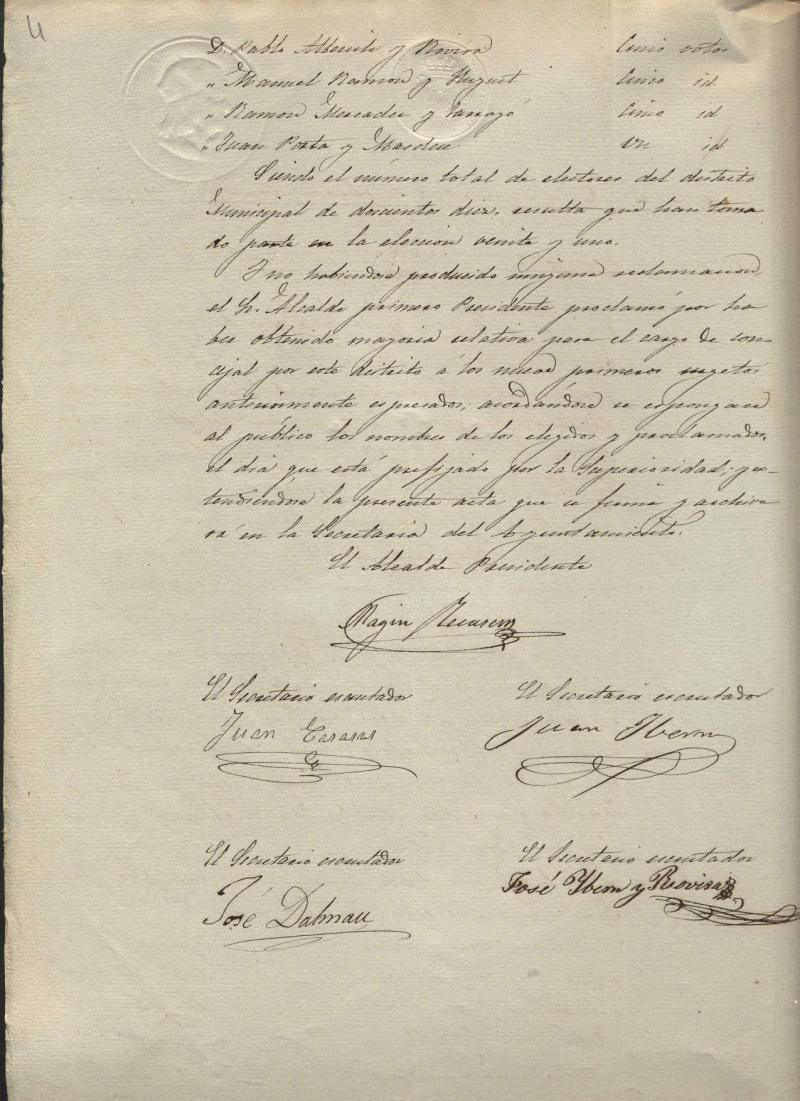 4
D. Pablo Alberich y Rovira Cinco votos
" Manuel Ramon y Huguet Cinco id
" Ramon Mercader y Tarragó Cinco id
" Juan Porta y Masdeu Un id
Siendo el número total de electores del distrito
Municipal de doscientos diez, resulta que han toma
do parte en la eleccion veinte y uno.
Y no habiendose producido ninguna reclamacion,
el Sr. Alcalde primero Presidente proclamó por ha
ber obtenido mayoria relativa para el cargo de con-
cejal por este distrito á los nueve primeros sugetos
anteriormente espresados; acordándose se espongan
al público los nombres de los elegidos y proclamados,
el dia que está prefijado por la Superioridad; y es-
tendiendose la presente acta que se firma y archiva
rá en la Secretaria del Ayuntamiento.
El Alcalde Presidente
Magin Recasens
El Secretario escrutador El Secretario escrutador
Juan Casasus Juan Ybern
El Secretario escrutador El Secretario escrutador
José Dalmau José Ybern y Rovira